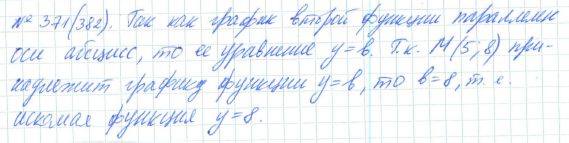 № 371(382). Так как график второй функции параллелен
оси абсцисс, то ее уравнение y=в. Т.к. М(5;8) при-
надлежит графику функции y=в, то в=8, т.е.
искомая функция y=8.